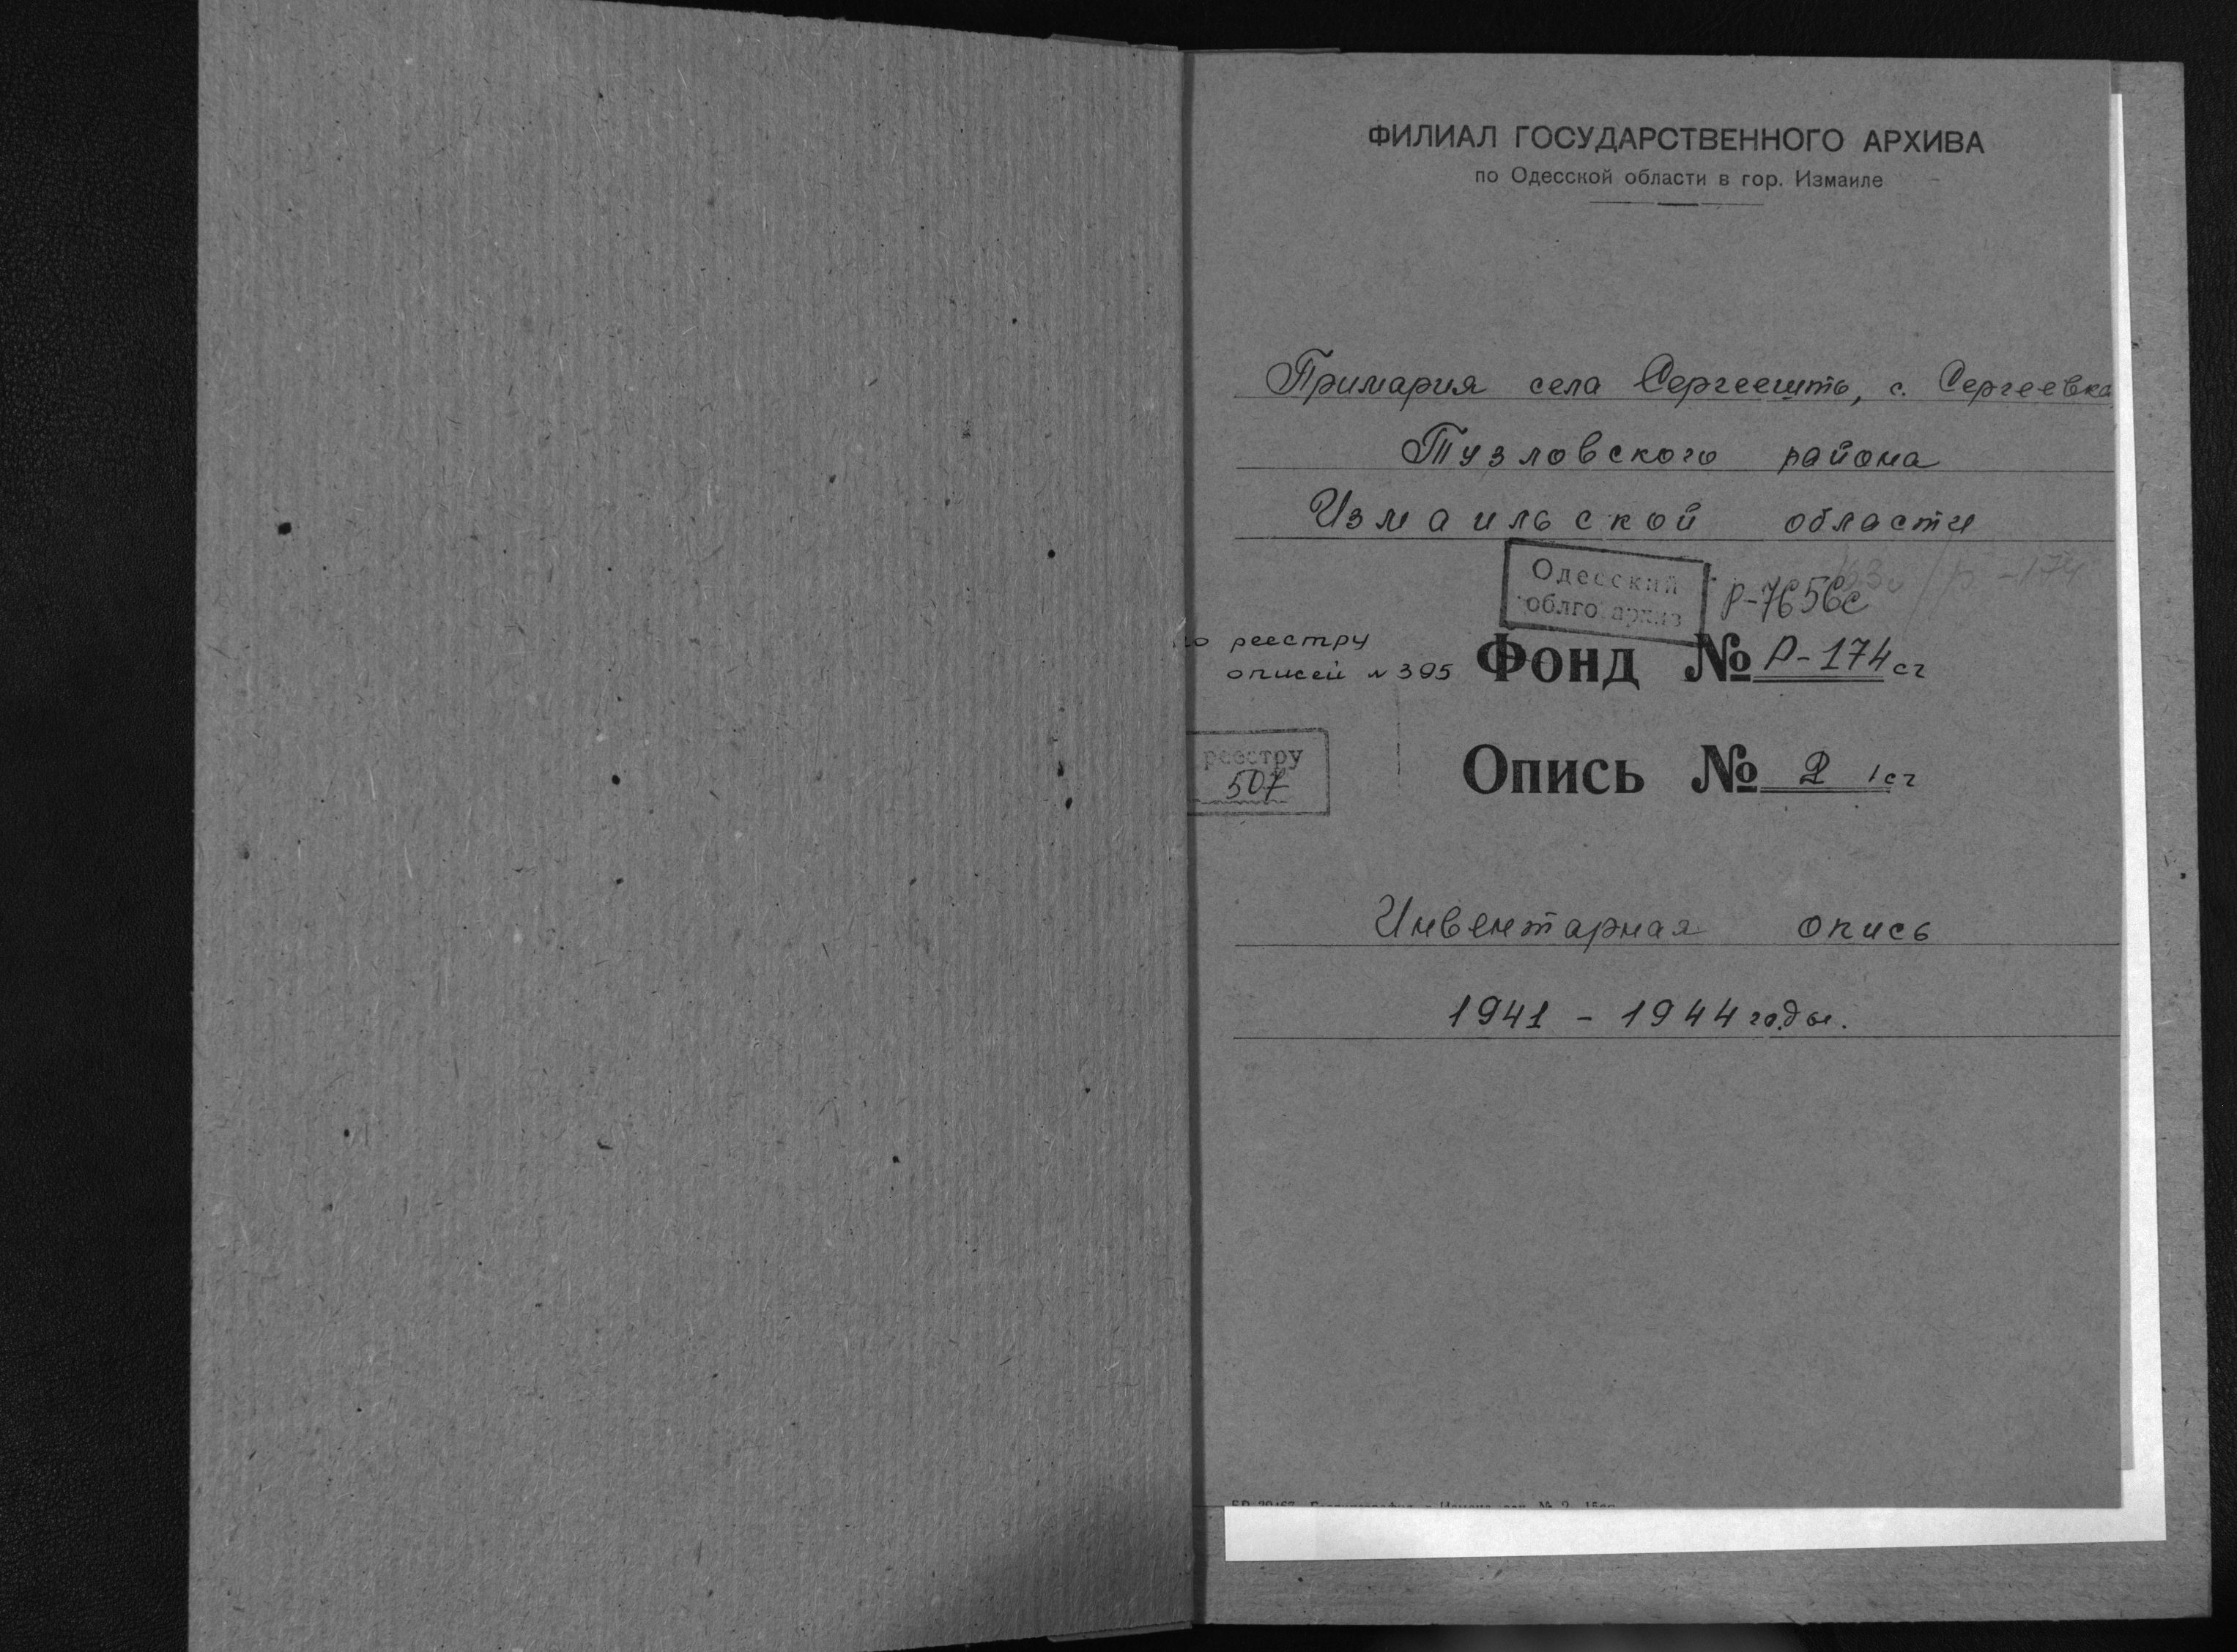 ФИЛИАЛ ГОСУДАРСТВЕННОГО АРХИВА
по Одесской области в гор. Измаиле
Примария села Сергеешть, с. Сергеевка
Тузловского района
Измаильской области
Одесский
облгоархив
Р-7656с
Р-174
по реестру
описей № 395
Фонд № Р-174 сг
реестру
507
Опись № 2 1 сг
Инвентарная опись
1941 - 1944 годы.